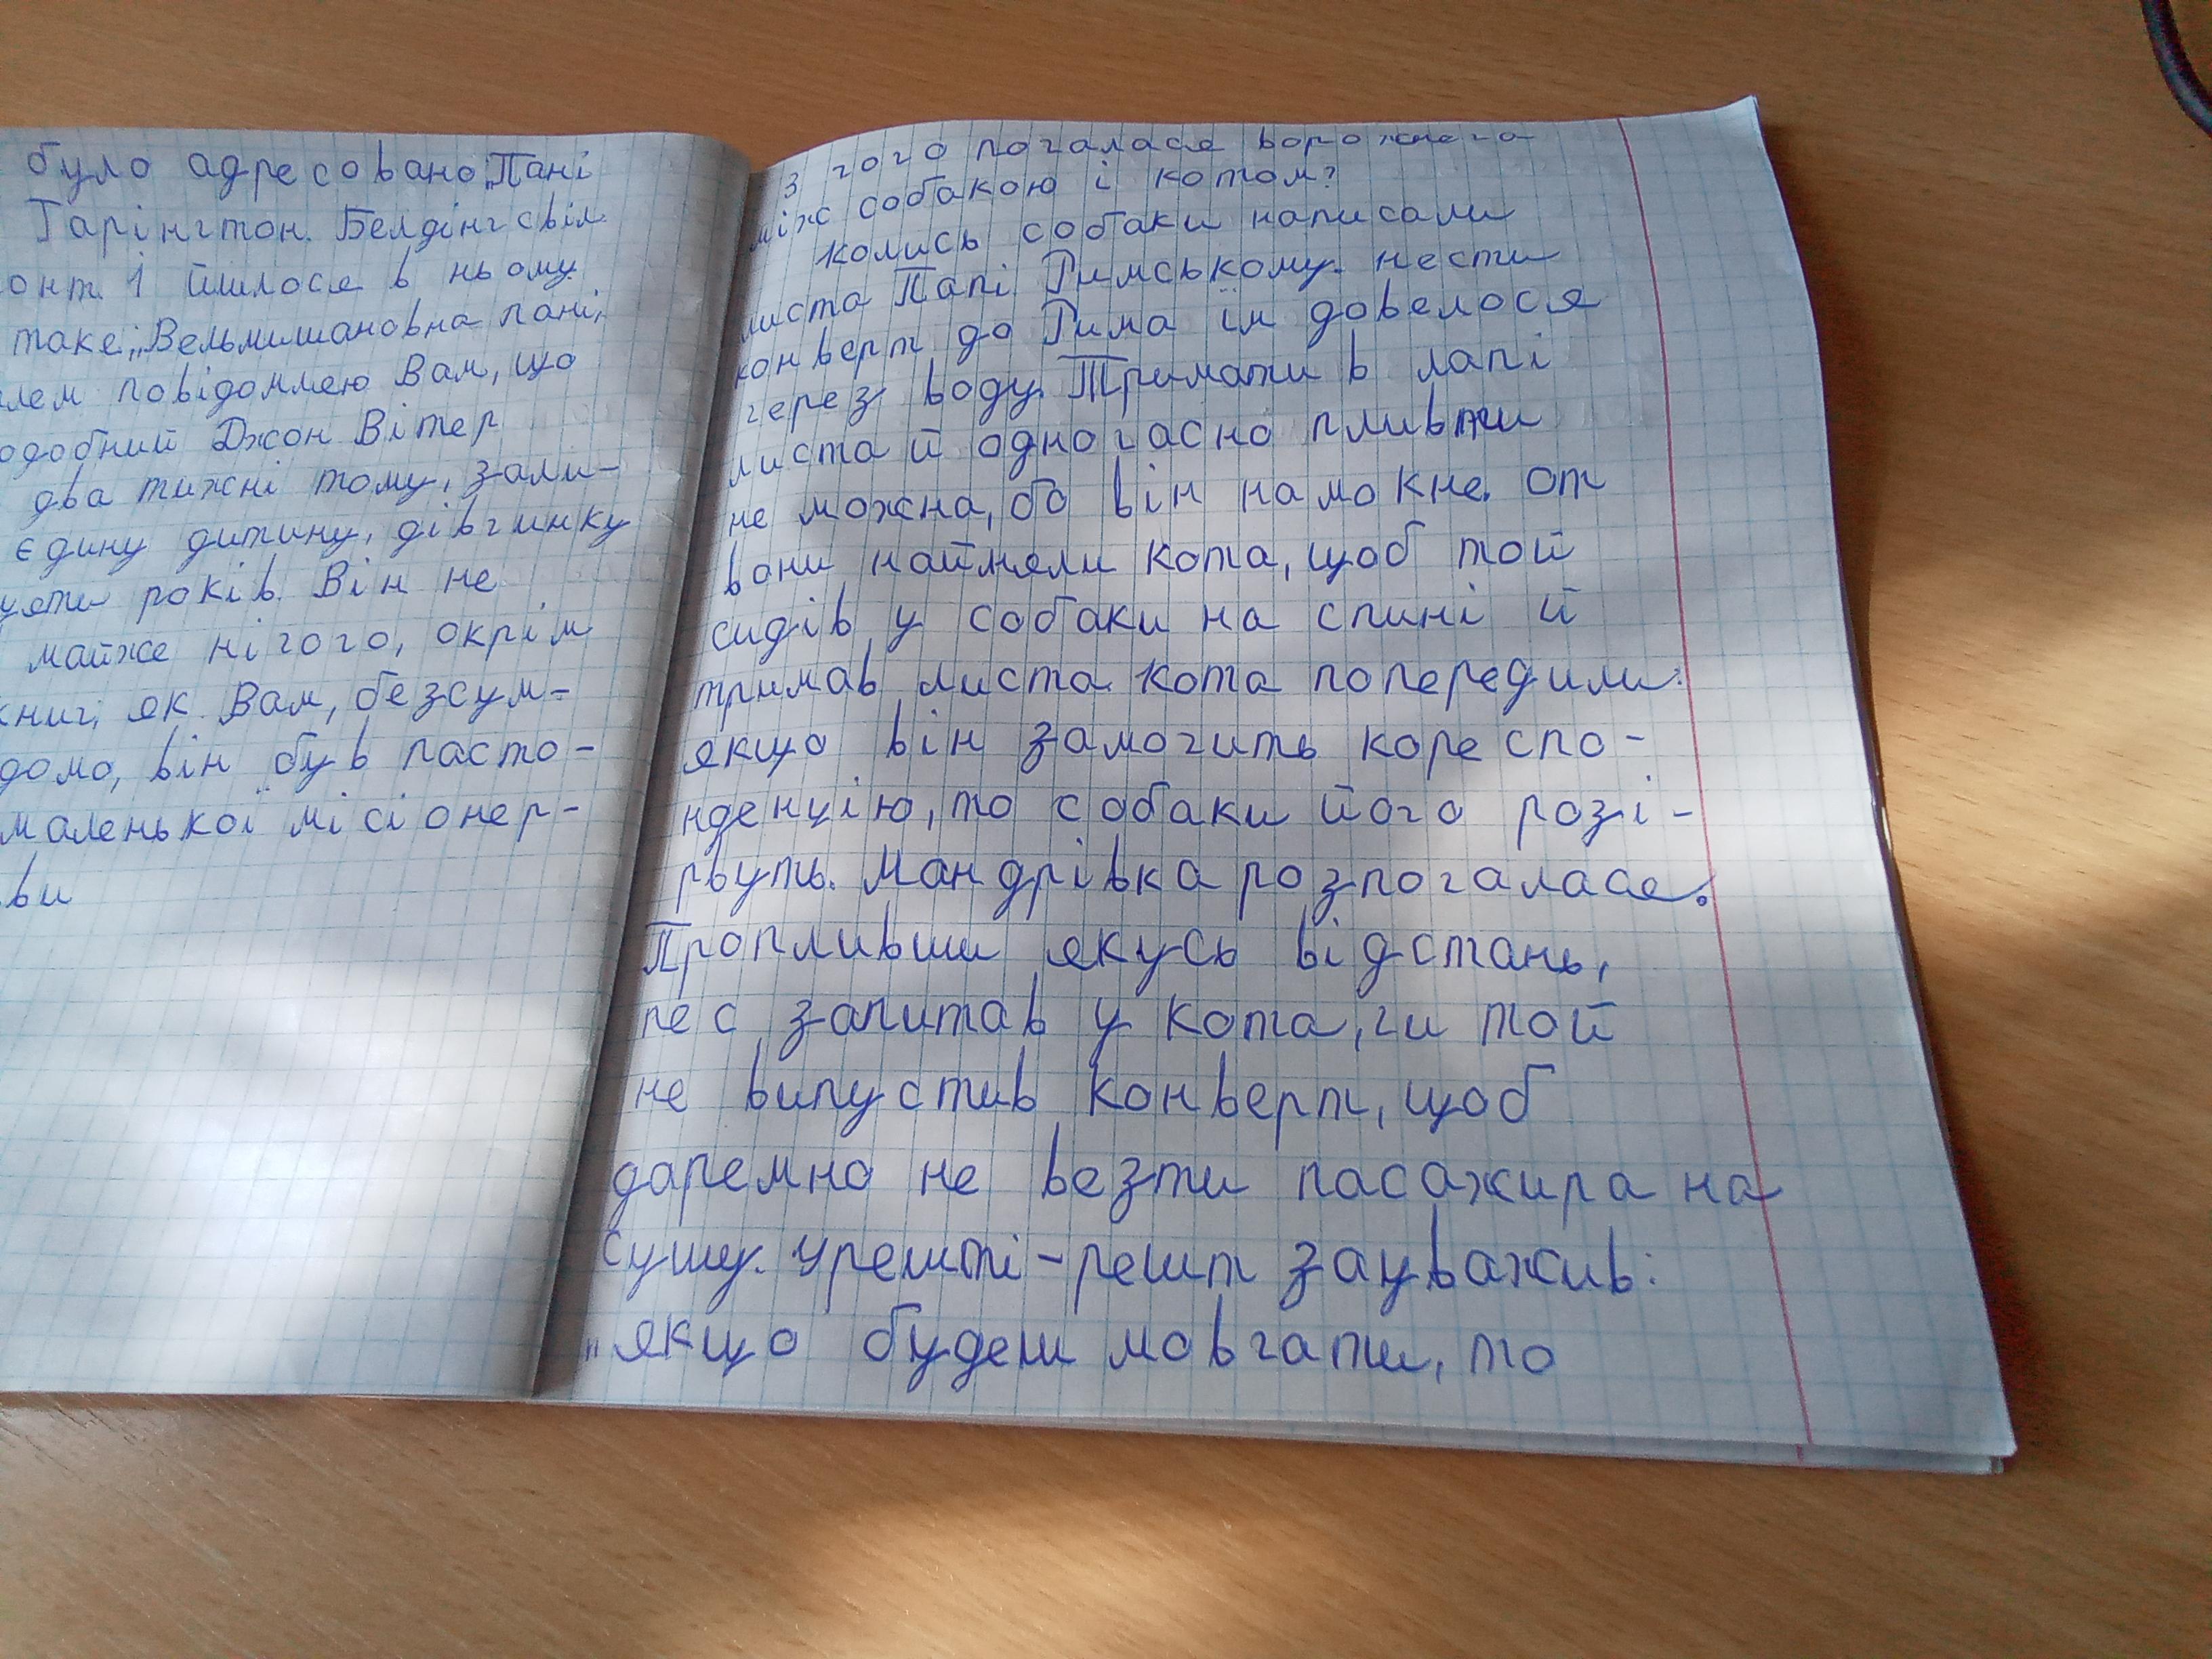 було адресовано „Пані
Гарінгтон. Белдінгсвіл
онт. І йшлося в ньому
таке: „Вельмишановна пані,
лем повідомляю Вам, що
одобний Джон Вітер
два тижні тому, зали-
єдину дитину, дівчинку
цяти років. Він не
майже нічого, окрім
книг, як Вам, безсум-
домо, він був пасто-
маленької місіонер-
ви
З чого почалася ворожнеча
між собакою і котом?
Колись собаки написали
листа Папі Римському. Нести
конверт до Рима їм довелося
через воду. Тримати в лапі
листа й одночасно пливти
не можна, бо він намокне. От
вони найняли кота, щоб той
сидів у собаки на спині й
тримав листа. Кота попередили:
якщо він замочить кореспо-
нденцію, то собаки його розі-
рвуть. Мандрівка розпочалася.
Пропливши якусь відстань,
пес запитав у кота, чи той
не випустив конверт, щоб
даремно не везти пасажира на
сушу. Урешті-решт зауважив:
„якщо будеш мовчати, то